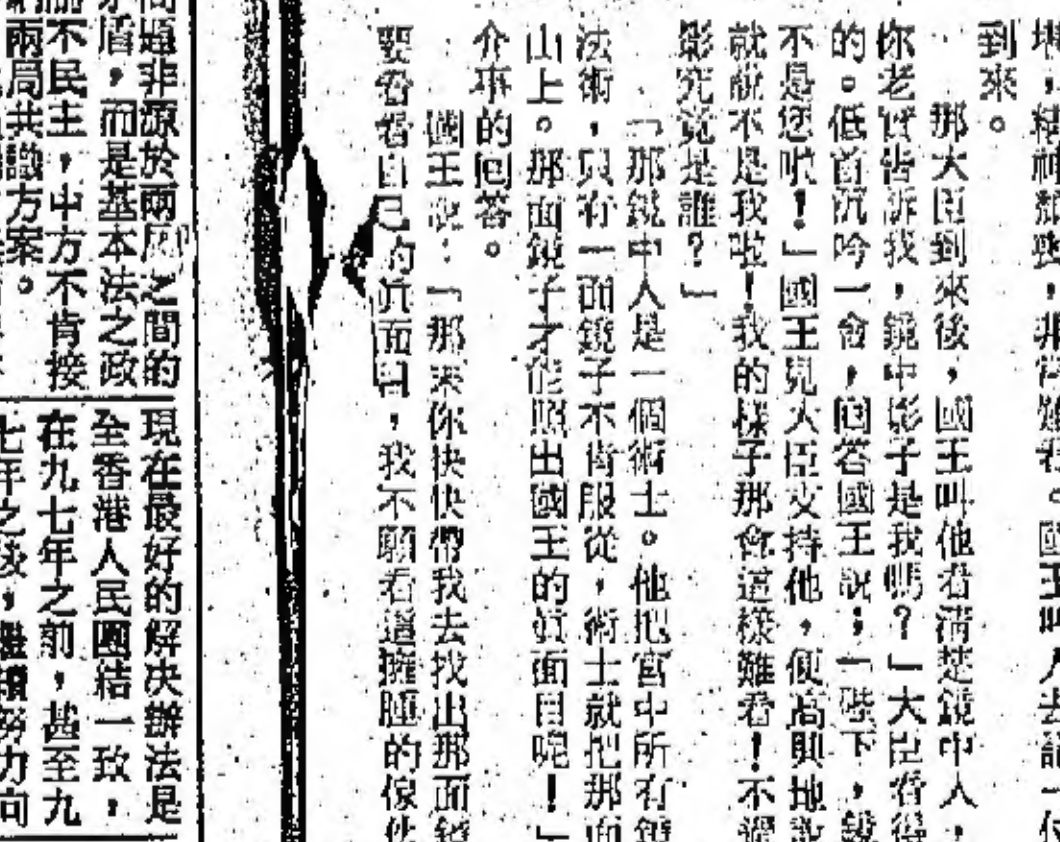 到來。
那大臣到來後，國王叫他看清楚鏡中人，
你老實告訴我，鏡中影子是我嗎？」大臣看得
的。低首沉吟一會，回答國王說：「陛下，
不是您啦！」國王見大臣支持他，便高興地說
就說不是我啦！我的樣子那會這樣難看！不過
影究竟是誰？」
「那鏡中人是一個術士。他把宮中所有鏡
法術，只有一面鏡子不肯服從，術士就把那面
山上。那面鏡子才能照出國王的真面目呢！」
介事的回答。
國王說：「那末你快快帶我去找出那面鏡
要看看自己的真面目，我不願看這擁腫的傢伙
問題非源於兩局之間的
矛盾，而是基本法之政
不民主，中方不肯接
兩局共識方案。
現在最好的解決辦法是
全香港人民團結一致，
在九七年之前，甚至九
七年之後，繼續努力向